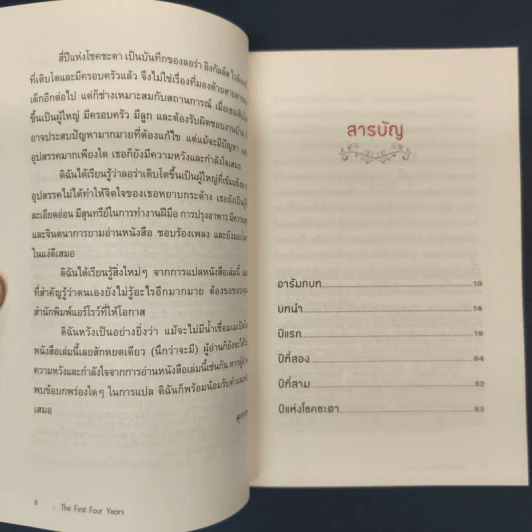 สี่ปีแห่งโชคชะตา เป็นบันทึกของลอร่า อิงกัลล์ส
ที่เติบโตและมีครอบครัวแล้ว จึงไม่ใช่เรื่องที่มองด้วยสายตาของ
เด็กอีกต่อไป แต่ก็ช่างเหมาะสมกับสถานการณ์ เมื่อเธอเติบโต
ขึ้นเป็นผู้ใหญ่ มีครอบครัว มีลูก และต้องรับผิดชอบงานบ้าน
อาจประสบปัญหามากมายที่ต้องแก้ไข แต่แม้จะมีปัญหา
อุปสรรคมากเพียงใด เธอก็ยังมีความหวังและกำลังใจเสมอ
ดิฉันได้เรียนรู้ว่าลอร่าเติบโตขึ้นเป็นผู้ใหญ่ที่เข้มแข็ง
อุปสรรคไม่ได้ทำให้จิตใจของเธอหยาบกระด้าง เธอยังเป็นผู้
ละเอียดอ่อน มีสุนทรีย์ในการทำงานฝีมือ การปรุงอาหาร มีความสุข
และจินตนาการยามอ่านหนังสือ ชอบร้องเพลง และยังมอง
ในแง่ดีเสมอ
ดิฉันได้เรียนรู้สิ่งใหม่ๆ จากการแปลหนังสือเล่มนี้ และ
ที่สำคัญรู้ว่าตนเองยังไม่รู้อะไรอีกมากมาย ต้องขอขอบคุณ
สำนักพิมพ์แอร์โรว์ที่ให้โอกาส
ดิฉันหวังเป็นอย่างยิ่งว่า แม้จะไม่มีน้ำเชื่อมเมเปิ้ลใน
หนังสือเล่มนี้เลยสักหยดเดียว (นึกว่าจะมี) ผู้อ่านก็ยังจะได้รับ
ความหวังและกำลังใจจากการอ่านหนังสือเล่มนี้เช่นกัน หากผู้อ่าน
พบข้อบกพร่องใดๆ ในการแปล ดิฉันก็พร้อมน้อมรับคำแนะนำ
เสมอ
8 The First Four Years
สารบัญ
อารัมภบท 10
บทนำ 14
ปีแรก 19
ปีที่สอง 64
ปีที่สาม 82
ปีแห่งโชคชะตา 93